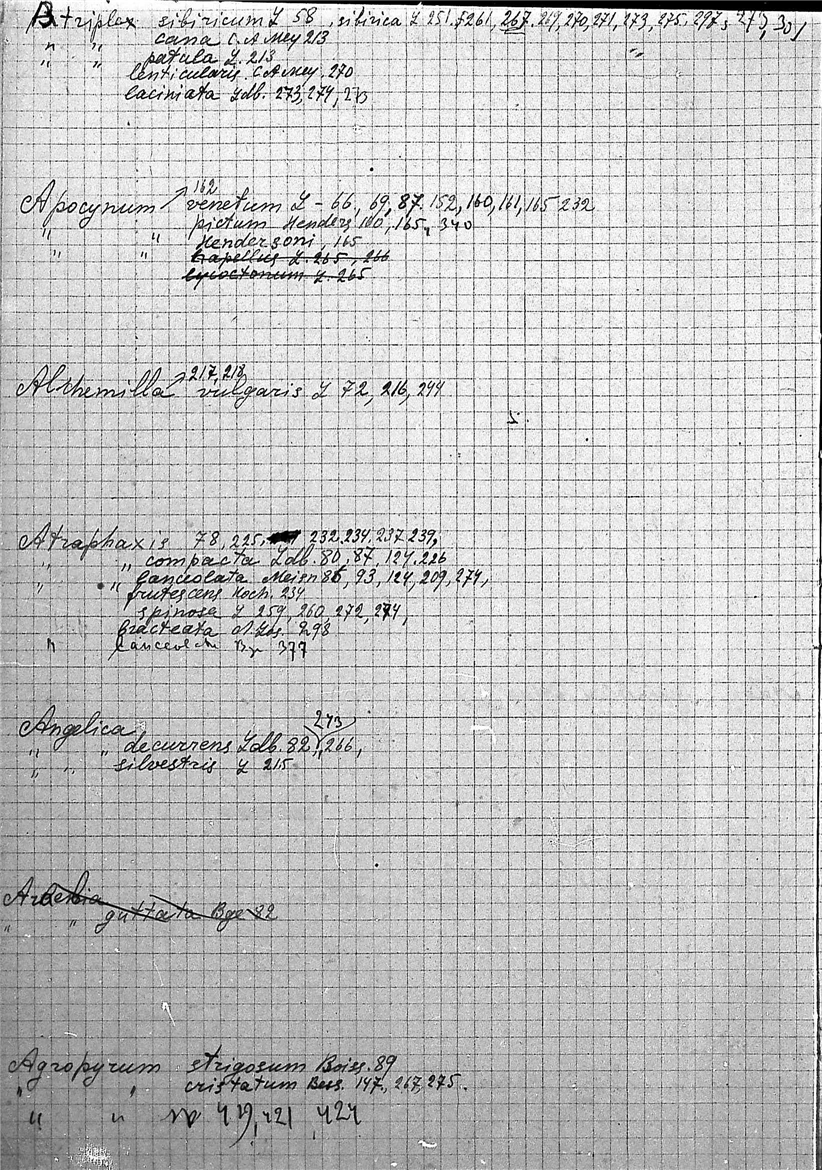 Atriplex sibiricum L 58, sibirica L 251, 261, 267, 269, 270, 271, 273, 275, 297, 301
„ „ cana C.A Mey 213
„ „ patula L. 213
lenticularis C.A.Mey. 270
laciniata Ldb. 273, 274, 273
162
Apocynum venetum L - 66, 69, 87, 152, 160, 161, 165 232
„ „ pictum Henders 160, 165, 340
„ „ Hendersoni, 165
napellus L. 265, 266
lycoctonum L. 265
217, 218
Alchemilla vulgaris L 72, 216, 244
Atraphaxis 78, 225, 232, 234, 237, 239,
„ compacta Ldb. 80, 87, 124, 226
„ „ lanceolata Meisn 86, 93, 124, 209, 274,
frutescens Koch. 234
spinosa L 259, 260, 272, 274,
bracteata A.Los. 298
„ 377
273
Angelica
„ „ decurrens Ldb. 82, 266,
„ „ silvestris L 215
Arnebia
„ „ guttata Bge 82
Agropyrum strigosum Boiss. 89
„ „ cristatum Bess. 147, 267, 275.
„ „ sp 419, 421, 424